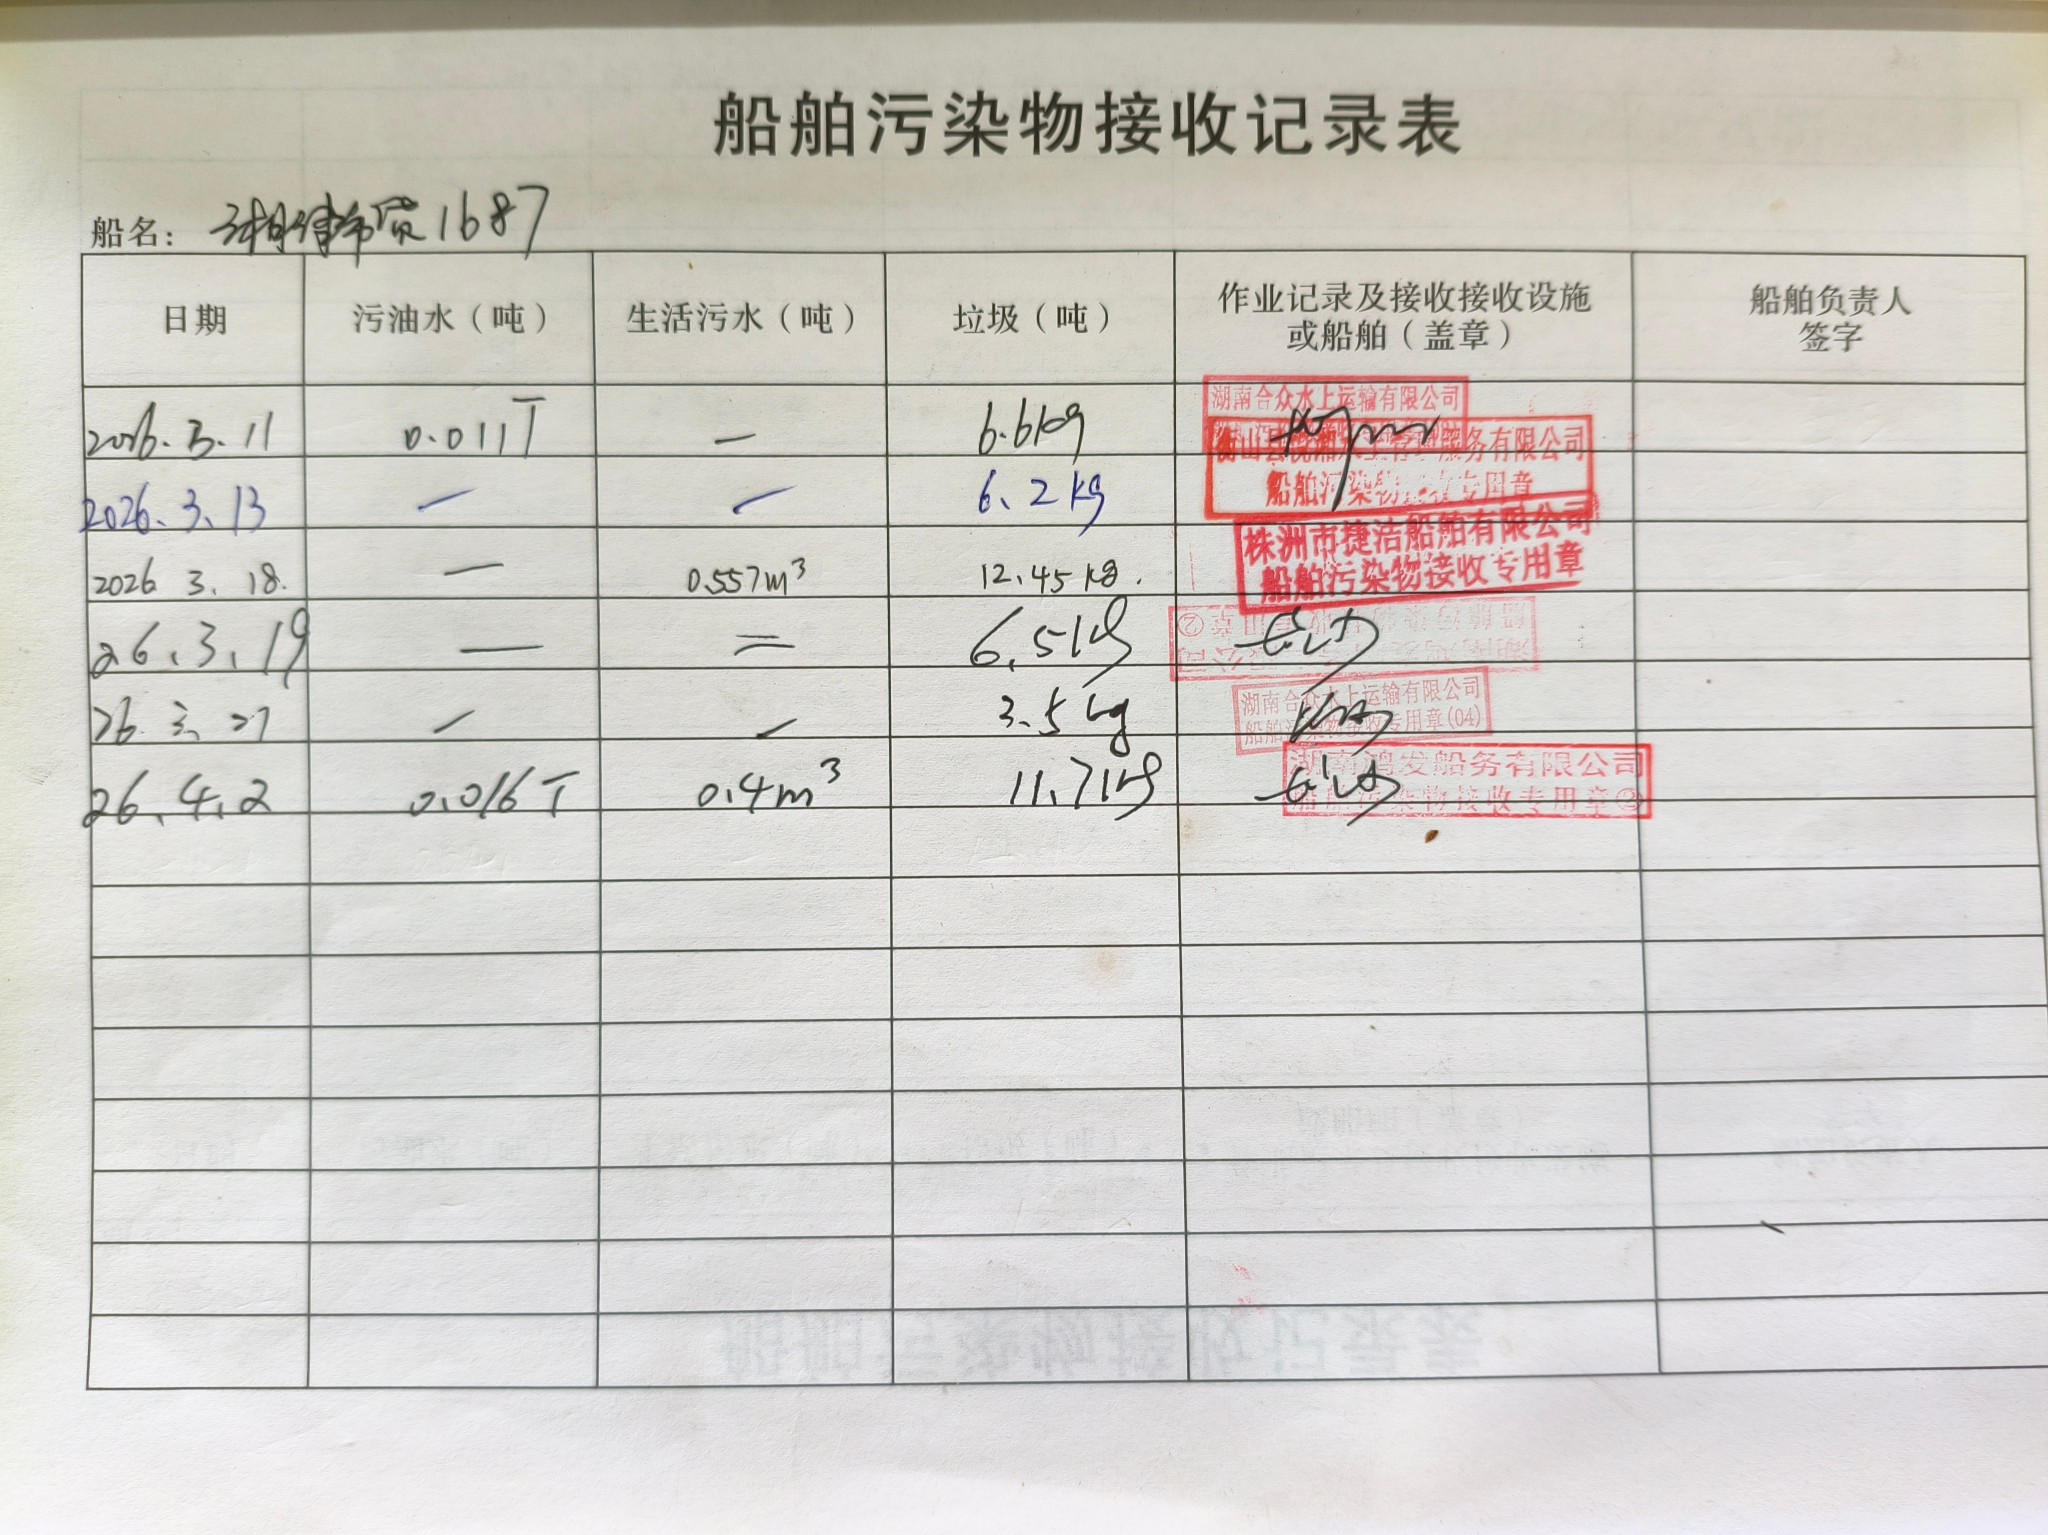 船舶污染物接收记录表
船名: 湘津市货1687
日期 污油水（吨） 生活污水（吨） 垃圾（吨） 作业记录及接收接收设施 船舶负责人
或船舶（盖章） 签字
湖南合众水上运输有限公司
2026.3.11 0.011T — 6.6kg
衡山县 服务有限公司
船舶污染物 专用章
2026.3.13 — — 6.2kg
株洲市捷洁船舶有限公司
船舶污染物接收专用章
2026 3.18. — 0.557m³ 12.45kg.
26.3.19 — = 6.5kg 长沙
②
湖南合众水上运输有限公司
船舶污染物接收专用章(04)
26.3.27 — — 3.5kg
湖南鸿发船务有限公司
船舶污染物接收专用章②
26.4.2 0.016T 0.4m³ 11.7kg 长沙